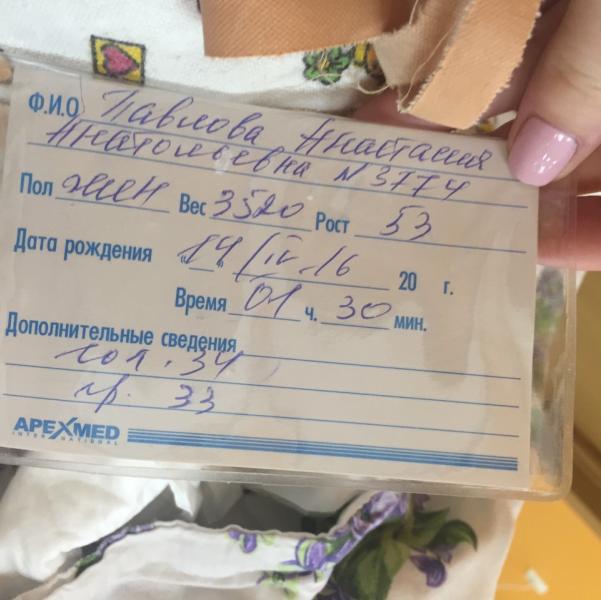 Ф.И.О Павлова Анастасия
Анатольевна N 3774
Пол жен Вес 3520 Рост 53
Дата рождения "14" IV.16 20 г.
Время 01 ч. 30 мин.
Дополнительные сведения
гол. 34
гр. 33
APEXMED
INTERNATIONAL